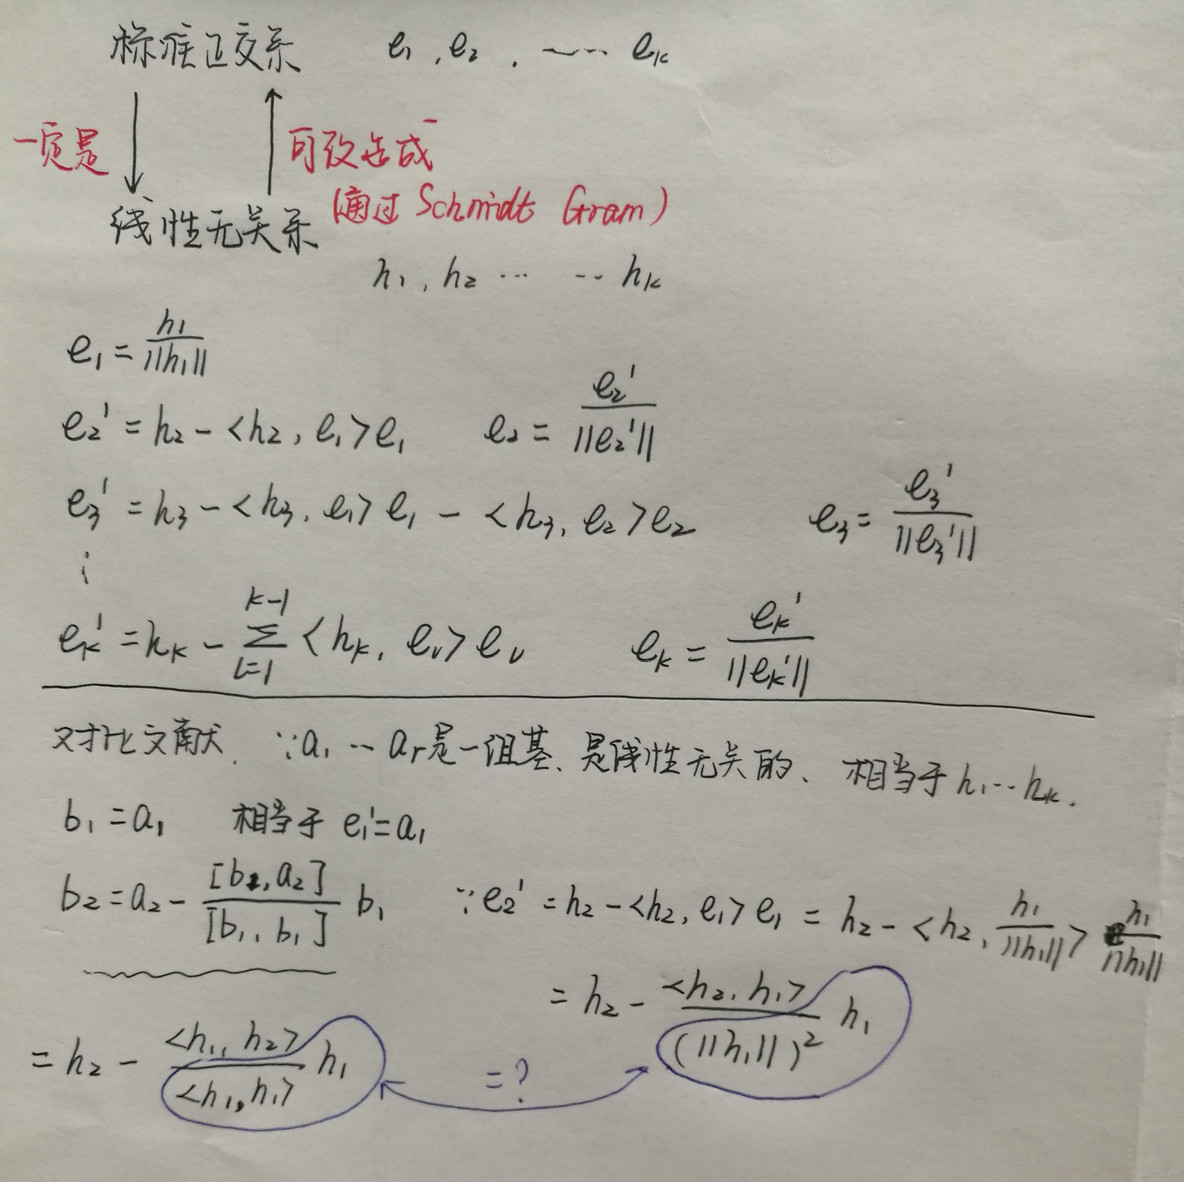 标准正交系 e₁, e₂, ····· eₖ
一定是 可改造成
(通过 Schmidt Gram)
线性无关系
h₁, h₂ ··· ··· hₖ
e₁ = h₁/||h₁||
e₂' = h₂ - <h₂, e₁>e₁ e₂ = e₂'/||e₂'||
e₃' = h₃ - <h₃, e₁>e₁ - <h₃, e₂>e₂ e₃ = e₃'/||e₃'||
⋮
eₖ' = hₖ - ∑_{i=1}^{k-1} <hₖ, eᵢ>eᵢ eₖ = eₖ'/||eₖ'||
对比文献. ∵a₁ ··· aᵣ是一组基、是线性无关的、相当于h₁···hₖ.
b₁ = a₁ 相当于 e₁' = a₁
b₂ = a₂ - [b₁, a₂]/[b₁, b₁] b₁ ∵e₂' = h₂ - <h₂, e₁>e₁ = h₂ - <h₂, h₁/||h₁||> h₁/||h₁||
= h₂ - <h₂, h₁>/(||h₁||)² h₁
= h₂ - <h₁, h₂>/<h₁, h₁> h₁ =?